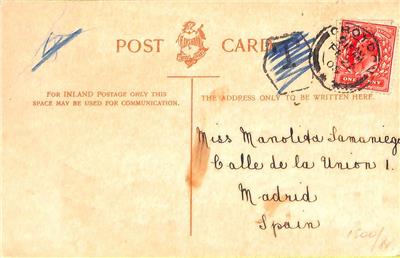 POST CARD
T
CROYDON
ONE
FOR INLAND POSTAGE ONLY THIS
SPACE MAY BE USED FOR COMMUNICATION.
THE ADDRESS ONLY TO BE WRITTEN HERE.
Miss Manolita Samaniego
Calle de la Union 1.
Madrid
Spain